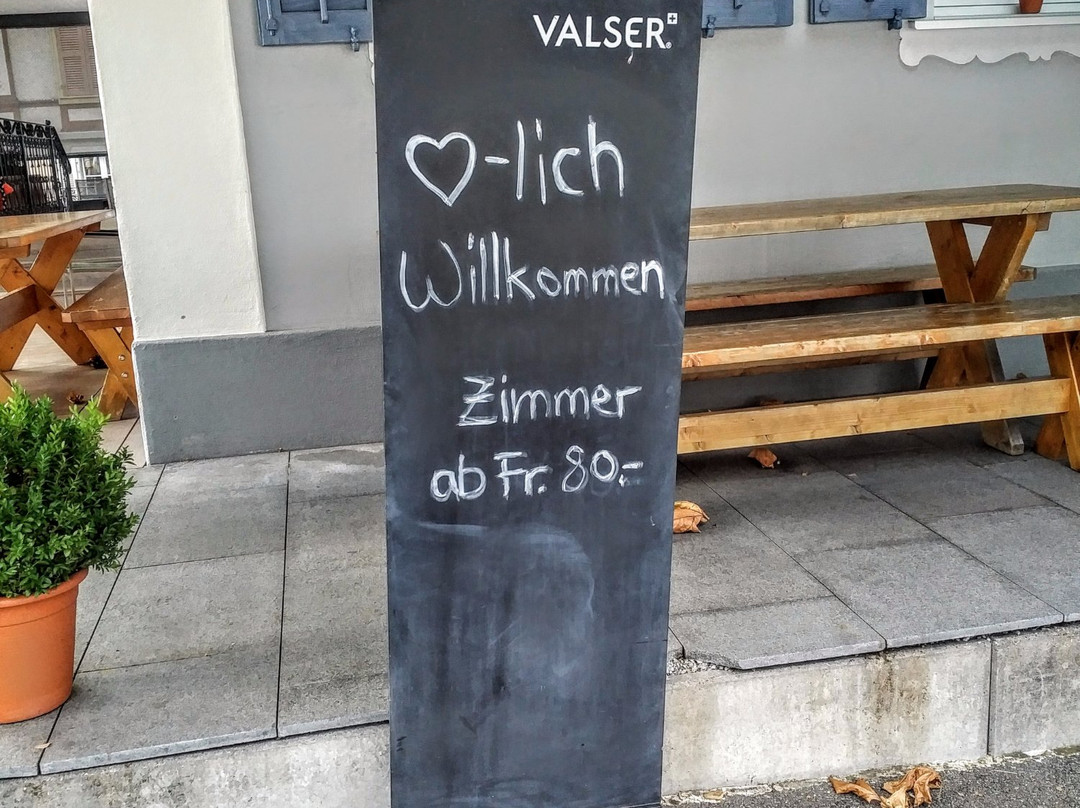 VALSER
♡-lich
Willkommen
Zimmer
ab Fr. 80.-